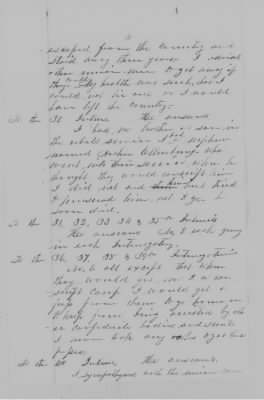 6
escaped from the Country and
staid away three years. I advised
other union men to get away if
they could. My health was such, that I
could not lie out or I would
have left the country.
To the 30 Inter. He answers
I had no brother or son in
the rebels service I had a nephew
named John who
went into their service when he
thought they would conscript him
I did not and kind
I persuaded him not to go. he
soon died.
To the 31, 32, 33, 34 & 35th Inter's
He answers No, to each query
in each Interrogatory.
To the 36, 37, 38 & 39th Interrogatories
No. to all except that when
they would get me in a con-
script Camp I would get a
pass from them to go home on
to keep from being arrested by oth-
er confederate bodies and scouts
I never took any oaths to get them
passes.
To the 40 Inter. He answers.
I sympathized with the union cause